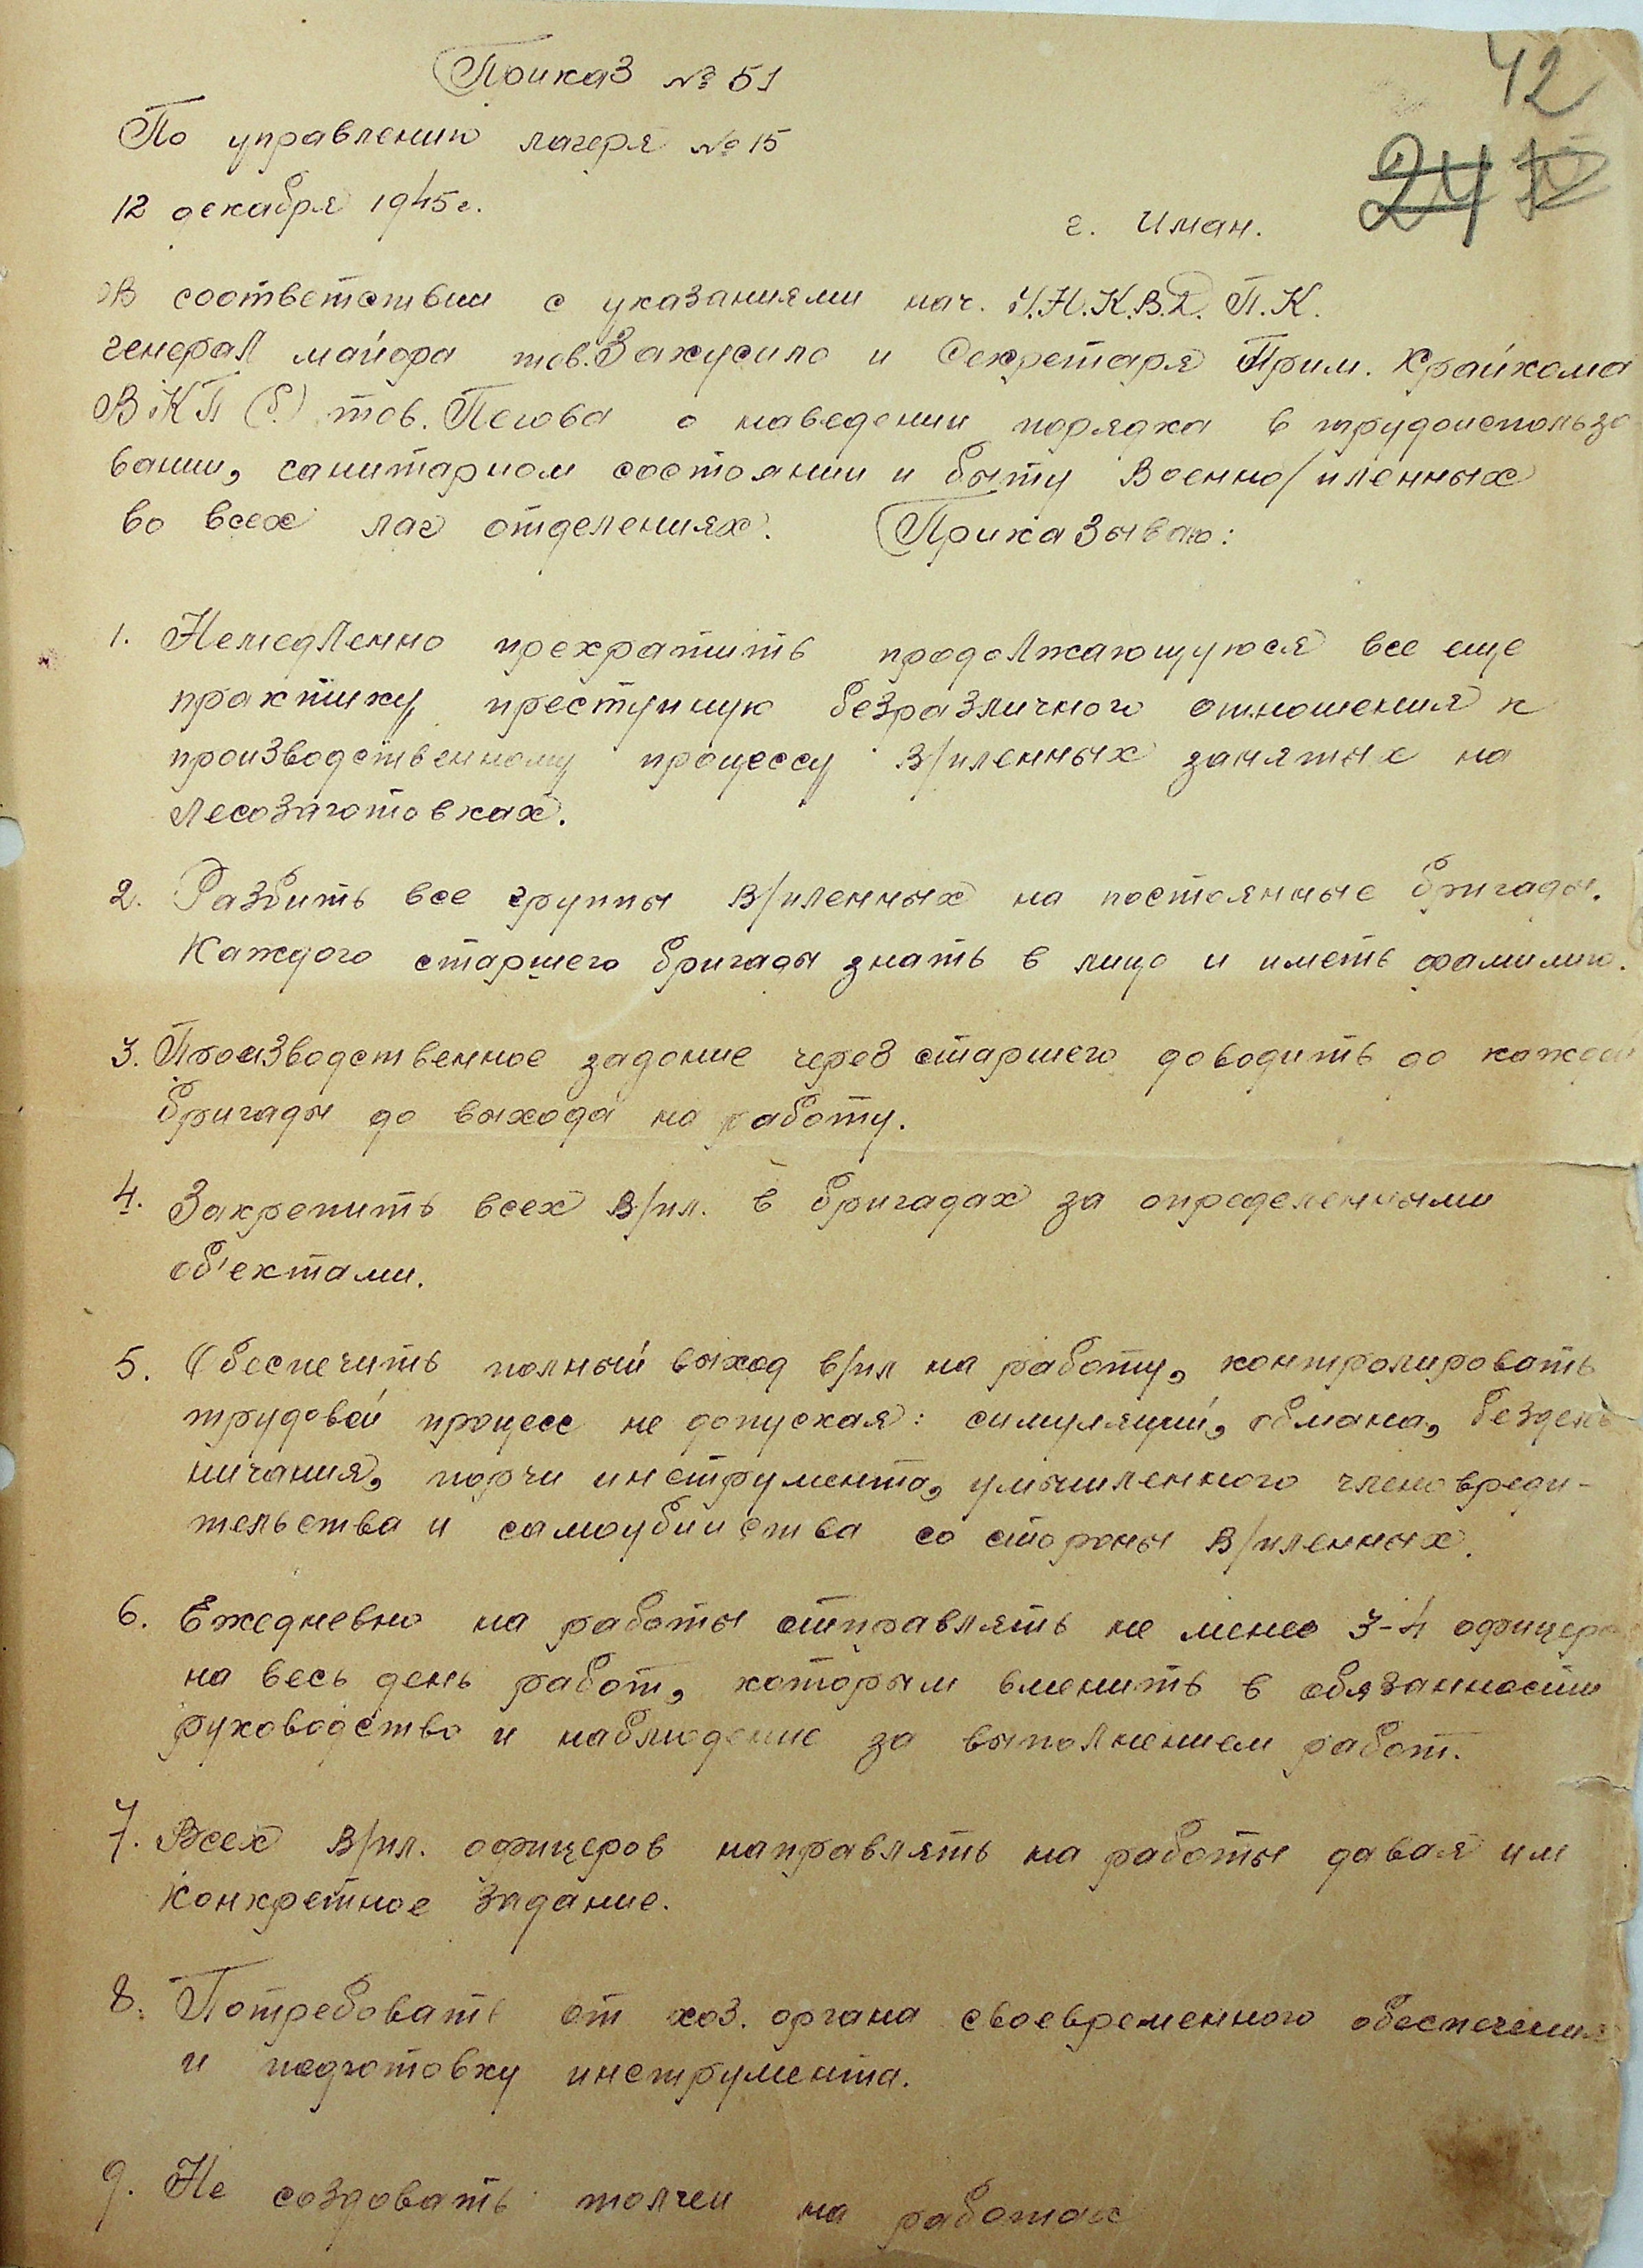 Приказ № 51
42
По управлению лагеря № 15
24
12 декабря 1945 г.
г. Иман.
В соответствии с указаниями нач. У.Н.К.В.Д. П.К.
генерал майора тов. Закусило и Секретаря Прим. Крайкома
ВКП(б) тов. Пегова о наведении порядка в трудоиспользо
вании, санитарном состоянии и быту Военно/пленных
во всех лаг отделениях. Приказываю:
1. Немедленно прекратить продолжающуюся все еще
практику преступную безразличного отношения к
производственному процессу в/пленных занятых на
лесозаготовках.
2. Разбить все группы в/пленных на постоянные бригады.
Каждого старшего бригады знать в лицо и иметь фамилию.
3. Производственное задоние через старшего доводить до каждой
бригады до выхода на работу.
4. Закрепить всех в/пл. в бригадах за определенными
об'ектами.
5. Обеспечить полный выход в/пл на работу, контролировать
трудовой процесс не допуская: симуляций, обмана, бездель
ничания, порчи инструмента, умышленного членовреди-
тельства и самоубийства со стороны в/пленных.
6. Ежедневно на работы отправлять не менее 3-4 офицеров
на весь день работ, которым вменить в обязанности
руководство и наблюдение за выполнением работ.
7. Всех в/пл. офицеров направлять на работы давая им
конкретное задание.
8. Потребовать от хоз. органа своевременного обеспечения
и подготовку инструмента.
9. Не создовать толчеи на работах